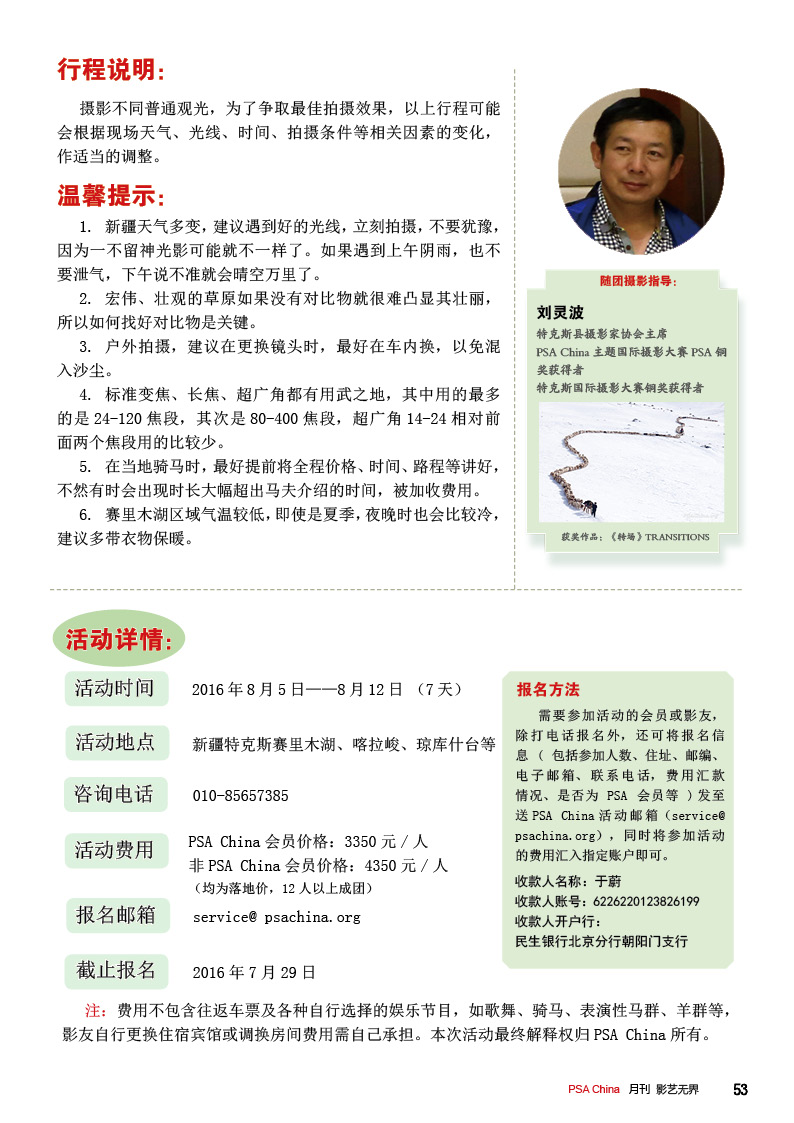 行程说明：
摄影不同普通观光，为了争取最佳拍摄效果，以上行程可能
会根据现场天气、光线、时间、拍摄条件等相关因素的变化，
作适当的调整。
温馨提示：
1. 新疆天气多变，建议遇到好的光线，立刻拍摄，不要犹豫，
因为一不留神光影可能就不一样了。如果遇到上午阴雨，也不
要泄气，下午说不准就会晴空万里了。
2. 宏伟、壮观的草原如果没有对比物就很难凸显其壮丽，
所以如何找好对比物是关键。
3. 户外拍摄，建议在更换镜头时，最好在车内换，以免混
入沙尘。
4. 标准变焦、长焦、超广角都有用武之地，其中用的最多
的是 24-120 焦段，其次是 80-400 焦段，超广角 14-24 相对前
面两个焦段用的比较少。
5. 在当地骑马时，最好提前将全程价格、时间、路程等讲好，
不然有时会出现时长大幅超出马夫介绍的时间，被加收费用。
6. 赛里木湖区域气温较低，即使是夏季，夜晚时也会比较冷，
建议多带衣物保暖。
随团摄影指导：
刘灵波
特克斯县摄影家协会主席
PSA China 主题国际摄影大赛 PSA 铜
奖获得者
特克斯国际摄影大赛铜奖获得者
获奖作品：《转场》TRANSITIONS
活动详情：
活动时间 2016 年 8 月 5 日——8 月 12 日 （7 天）
活动地点 新疆特克斯赛里木湖、喀拉峻、琼库什台等
咨询电话 010-85657385
活动费用 PSA China 会员价格：3350 元 / 人
非 PSA China 会员价格：4350 元 / 人
（均为落地价，12 人以上成团）
报名邮箱 service@ psachina.org
截止报名 2016 年 7 月 29 日
报名方法
需要参加活动的会员或影友，
除打电话报名外，还可将报名信
息（ 包括参加人数、住址、邮编、
电子邮箱、联系电话，费用汇款
情况、是否为 PSA 会员等 ）发至
送 PSA China 活动邮箱（service@
psachina.org），同时将参加活动
的费用汇入指定账户即可。
收款人名称：于蔚
收款人账号：6226220123826199
收款人开户行：
民生银行北京分行朝阳门支行
注：费用不包含往返车票及各种自行选择的娱乐节目，如歌舞、骑马、表演性马群、羊群等，
影友自行更换住宿宾馆或调换房间费用需自己承担。本次活动最终解释权归 PSA China 所有。
PSA China 月刊 影艺无界 53